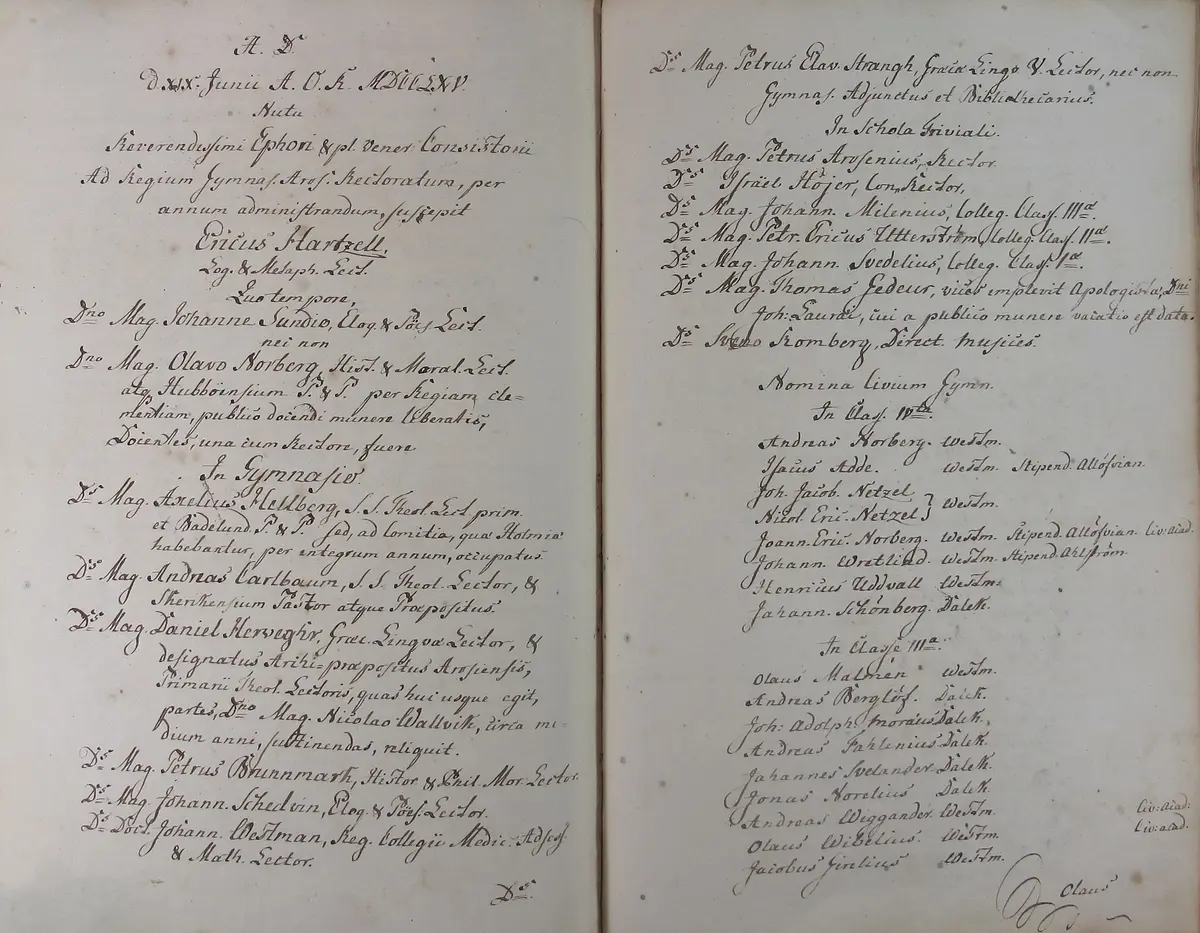 A. D.
D. XIX. Junii A. O. R. MDCCLXV.
Nutu
Reverendissimi Ephori & pl. Vener. Consistorii
Ad Regium Gymnas. Aros. Rectoratum, per
annum administrandum, suscepit
Ericus Hartzell,
Log. & Metaph. Lect.
Quo tempore,
Dno Mag. Johanne Sundio, Eloq. & Poës. Lect.
nec non
Dno Mag. Olavo Norberg, Hist. & Moral. Lect.
atq Hubböensium P. & P. per Regiam cle-
mentiam, publico docendi munere liberatis,
Docentes, una cum Rectore, fuere
In Gymnasio.
Ds Mag. Axelius Hellberg, S. S. Theol. Lect. prim.
et Badelund. P. & P. sed, ad Comitia, quæ Holmiæ
habebantur, per integrum annum, occupatus
Ds Mag. Andreas Carlbaum, S. S. Theol. Lector, &
Skerikensium Pastor atque Præpositus
Ds Mag. Daniel Herweghr, Græc. Lingvæ Lector, &
designatus Archi-præpositus Arosiensis,
Primarii Theol. Lectoris, quas huc usque egit,
partes, Dno Mag. Nicolao Wallvik, circa me-
dium anni, sustinendas, reliquit.
Ds Mag. Petrus Brunnmark, Histor. & Phil. Mor. Lector.
Ds Mag. Johann. Schedvin, Eloq. & Poës. Lector.
Ds Doct. Johann. Westman, Reg. Collegii Medic. Adsess.
& Math. Lector.
Ds.
Ds Mag. Petrus Elav. Strangh, Græcæ Lingv. V. Lector, nec non
Gymnas. Adjunctus et Bibliothecarius.
In Schola Triviali.
Ds Mag. Petrus Arosenius, Rector
Ds Israël Höjer, Con Rector,
Ds Mag. Johann. Milenius, Colleg. Class. IIIæ.
Ds Mag. Petr. Ericus Utterström, Colleg. Class. IIæ.
Ds Mag. Johann. Svedelius, Colleg. Class. Iæ.
Ds Mag. Thomas Gedeur, vices implevit Apologistæ, Dni
Joh: Lauræi, cui a publico munere vacatio est data.
Ds Sveno Romberg, Direct. Musices.
Nomina Civium Gymn.
In Class. IVta.
Andreas Norberg. Westm.
Isacus Adde. Westm. Stipend. Allösvian.
Joh. Jacob. Netzel
Nicol. Eric. Netzel } Westm.
Joann. Eric. Norberg. Westm. Stipend. Allösvian. Civ: Acad.
Johann. Wretliad. Westm. Stipend. Ahlström.
Henricus Uddvall Westm.
Johann. Schönberg. Dalek.
In Classe IIIa.
Olaus Malmén Westm.
Andreas Berglöf. Dalek.
Joh: Adolph. Moræus Dalek.
Andreas Fahlenius Dalek.
Johannes Svelander Dalek.
Jonas Norelius Dalek.
Andreas Weggander. Westm. Civ: acad:
Olaus Wibelius Westm. Civ: acad.
Jacobus Girelius Westm.
Olaus